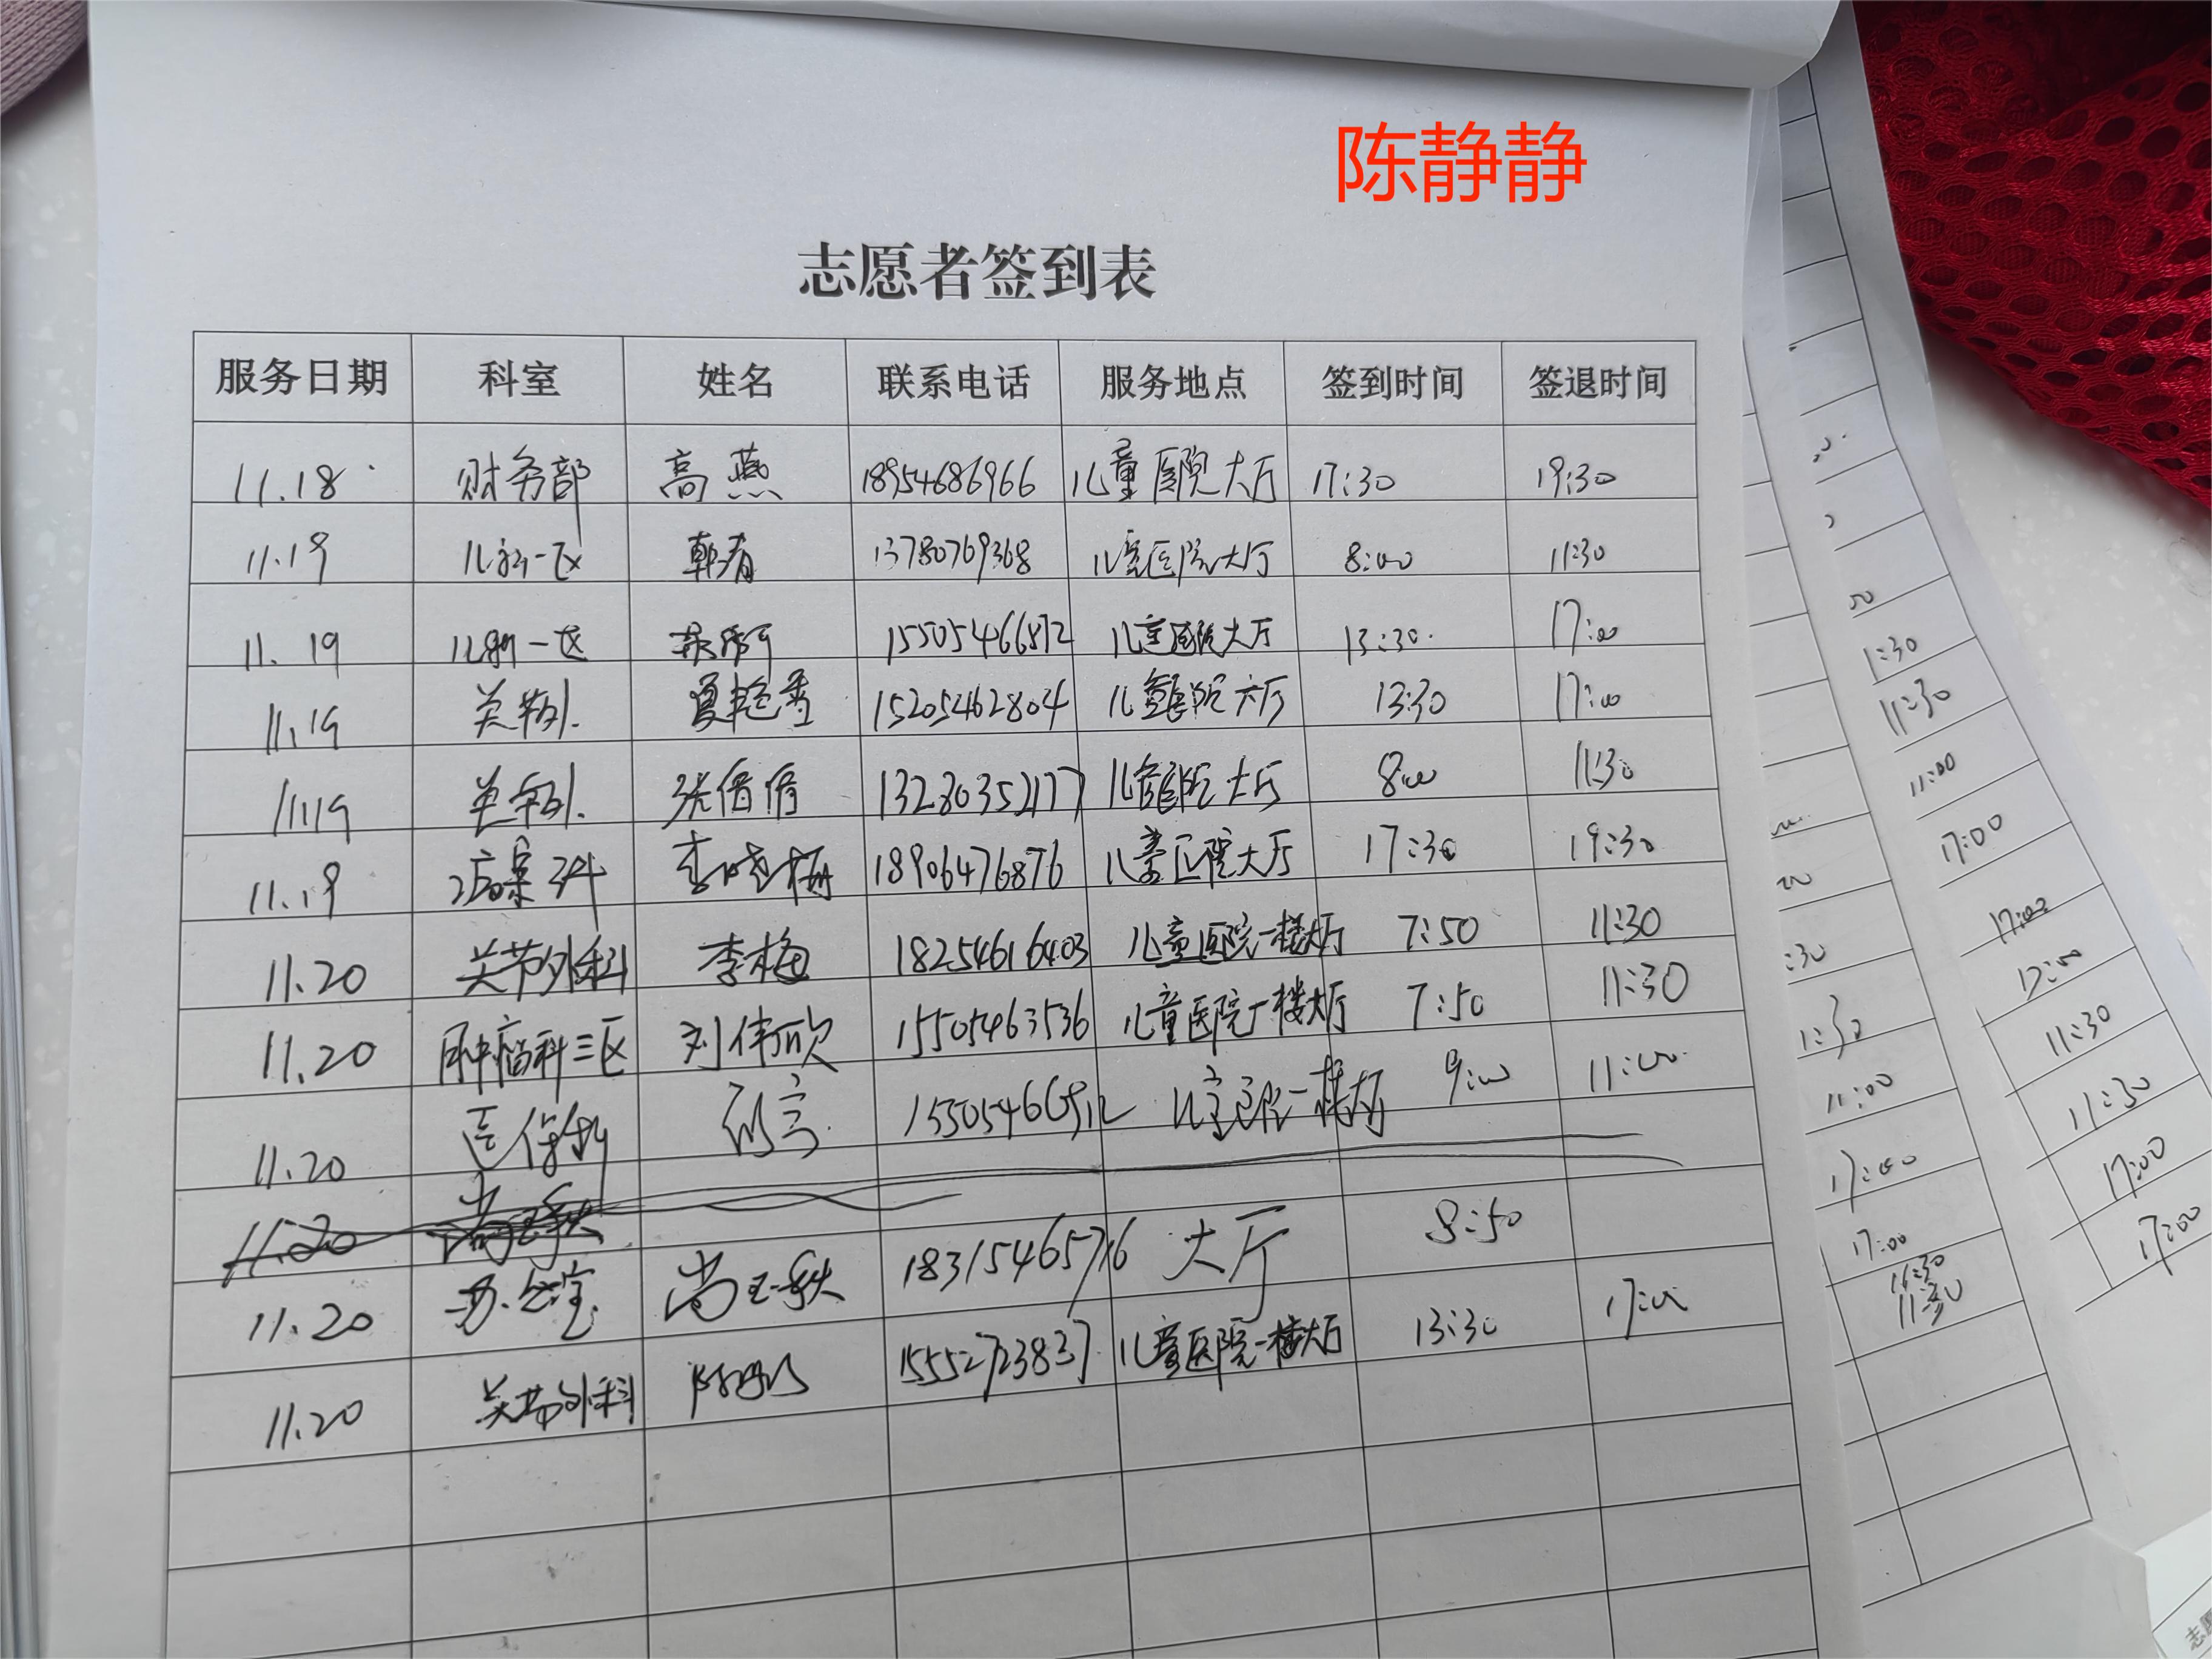 陈静静
志愿者签到表
服务日期 科室 姓名 联系电话 服务地点 签到时间 签退时间
11.18 财务部 高燕 18954686966 儿童医院大厅 17:30 19:30
11.19 一区 13780769368 儿童医院大厅 8:00 11:30
11.19 一区 15505466872 儿童医院大厅 13:30 17:00
11.19 夏艳香 15205462804 儿童医院大厅 13:30 17:00
11.19 张倩倩 13280352177 儿童医院大厅 8:00 11:30
11.19 病案科 李晓梅 18906476876 儿童医院大厅 17:30 19:30
11.20 关节外科 李梅 18254616403 儿童医院一楼大厅 7:50 11:30
11.20 肿瘤科三区 刘伟欣 15505463536 儿童医院一楼大厅 7:50 11:30
11.20 医保 儿童医院一楼大厅 9:00 11:00
11.20 尚玉秋
11.20 办公室 尚玉秋 18315465716 大厅 8:50
11.20 关节外科 15552723837 儿童医院一楼大厅 13:30 17:00
50
1:30
11:30
11:00
17:00
17:00
17:00
11:30
11:30
17:00
17:00
:30
1:30
11:00
17:00
17:00
11:30